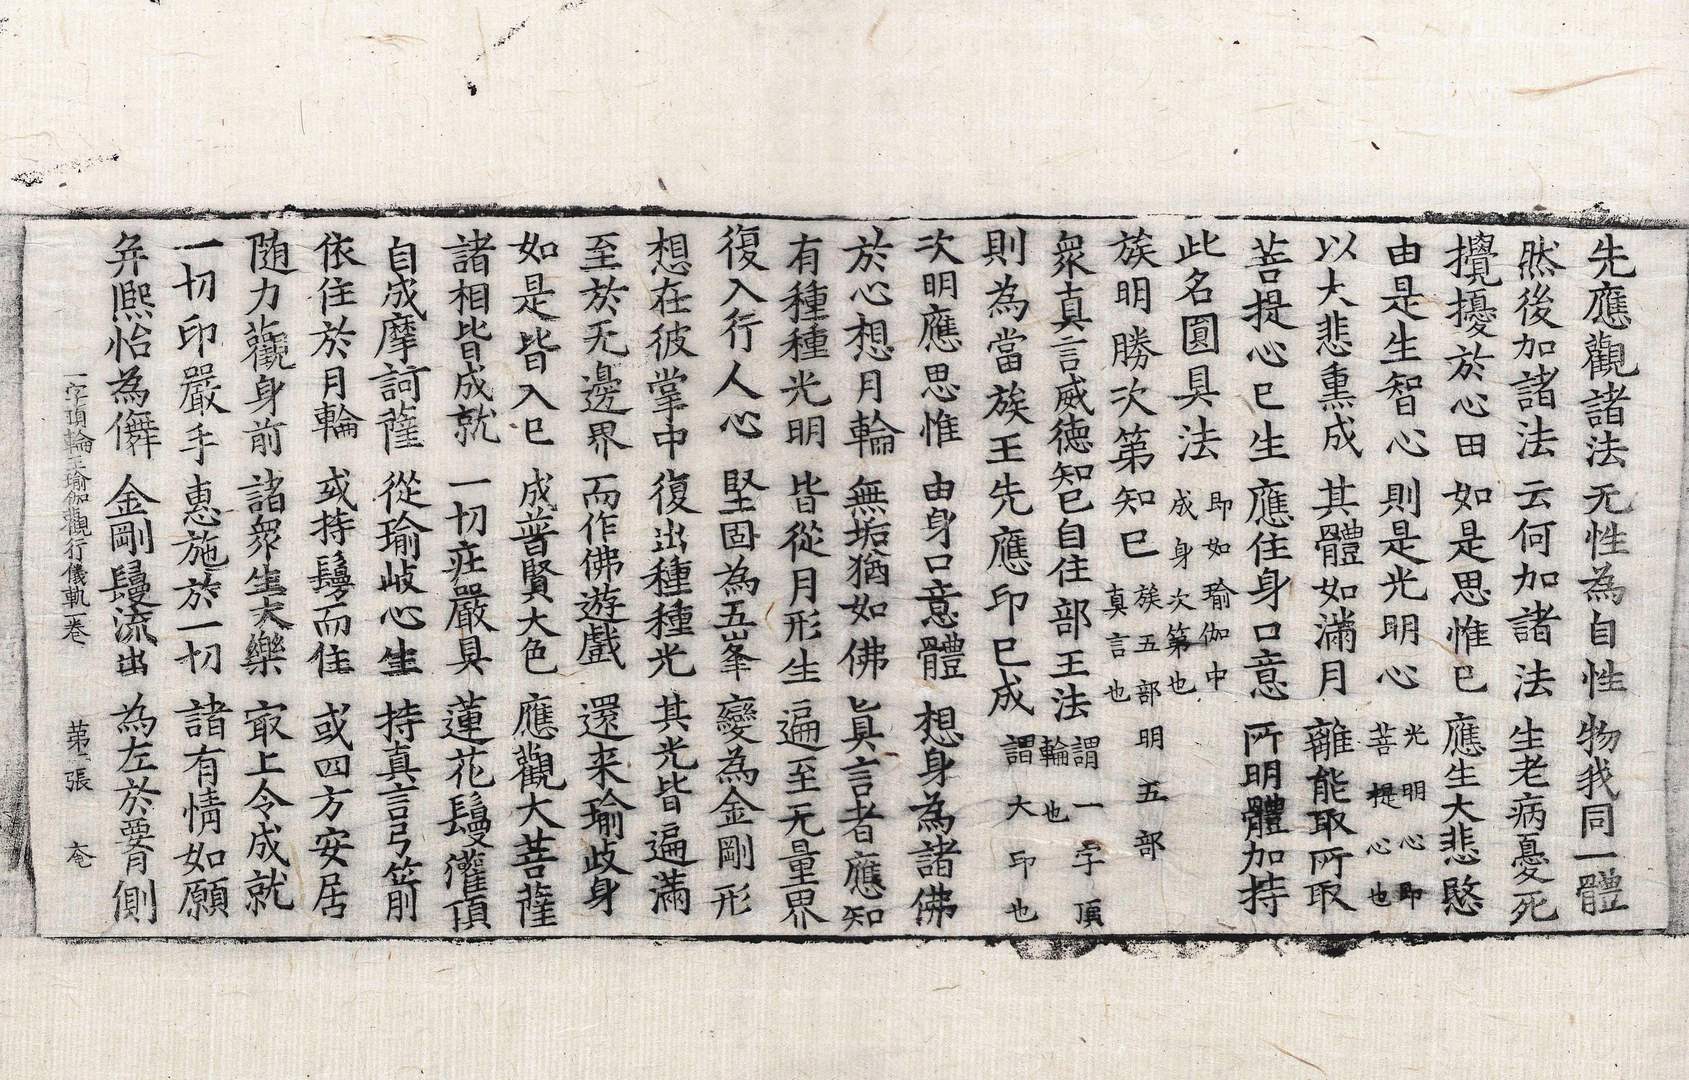 先應觀諸法 无性為自性 物我同一體
然後加諸法 云何加諸法 生老病憂死
攪擾於心田 如是思惟已 應生大悲愍
由是生智心 則是光明心 光明心即菩提心也
以大悲熏成 其體如滿月 離能取所取
菩提心已生 應住身口意 所明體加持
此名圓具法 即如瑜伽中成身次第也
族明勝次第知已 族五部明五部真言也
衆真言威德知已自住部王法 謂一字頂輪也
則為當族王先應印已成 謂大印也
次明應思惟 由身口意體 想身為諸佛
於心想月輪 無垢猶如佛 真言者應知
有種種光明 皆從月形生 遍至无量界
復入行人心 堅固為五峯 變為金剛形
想在彼掌中 復出種種光 其光皆遍滿
至於无邊界 而作佛遊戲 還来瑜岐身
如是皆入已 成普賢大色 應觀大菩薩
諸相皆成就 一切莊嚴具 蓮花鬘灌頂
自成摩訶薩 從瑜岐心生 持真言弓箭
依住於月輪 或持鬘而住 或四方安居
随力觀身前 諸衆生大樂 㝡上令成就
一切印嚴手 惠施於一切 諸有情如願
弁熈怡為儛 金剛鬘流出 為左於胷側
一字頂輪王瑜伽觀行儀軌一卷 第二張 㡳